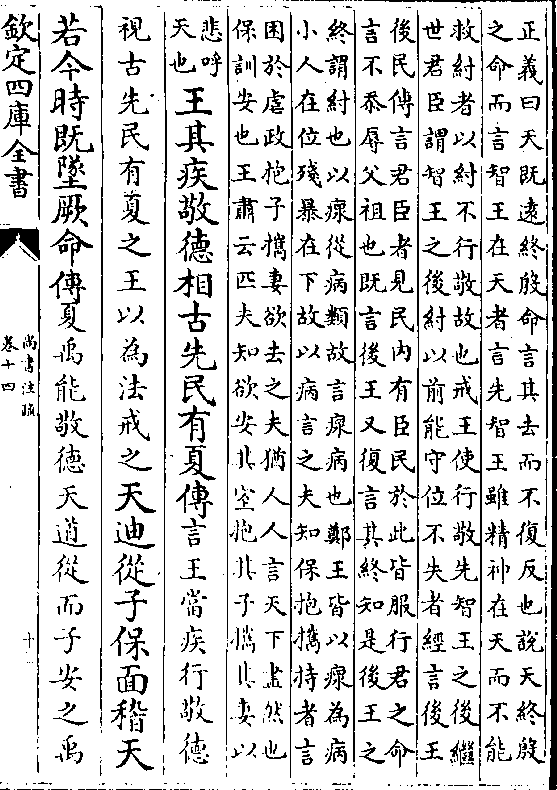 正義曰天既遠終殷命言其去而不復反也說天終殷
之命而言智王在天者言先智王雖精神在天而不能
救紂者以紂不行敬故也戒王使行敬先智王之後繼
世君臣謂智王之後紂以前能守位不失者經言後王
後民傳言君臣者見民内有臣民於此皆服行君之命
言不忝辱父祖也既言後王又復言其終知是後王之
終謂紂也以瘝從病類故言瘝病也鄭王皆以瘝為病
小人在位殘暴在下故以病言之夫知保抱攜持者言
困於虐政抱子攜妻欲去之夫猶人人言天下盡然也
保訓安也王肅云匹夫知欲安其室抱其子攜其妻以
悲呼
天也王其疾敬德相古先民有夏傳言王當疾行敬德
視古先民有夏之王以為法戒之天迪從子保面稽天
若今時既墜厥命傳夏禹能敬德天道從而子安之禹
欽定四庫全書
尚書注疏
卷十四
十